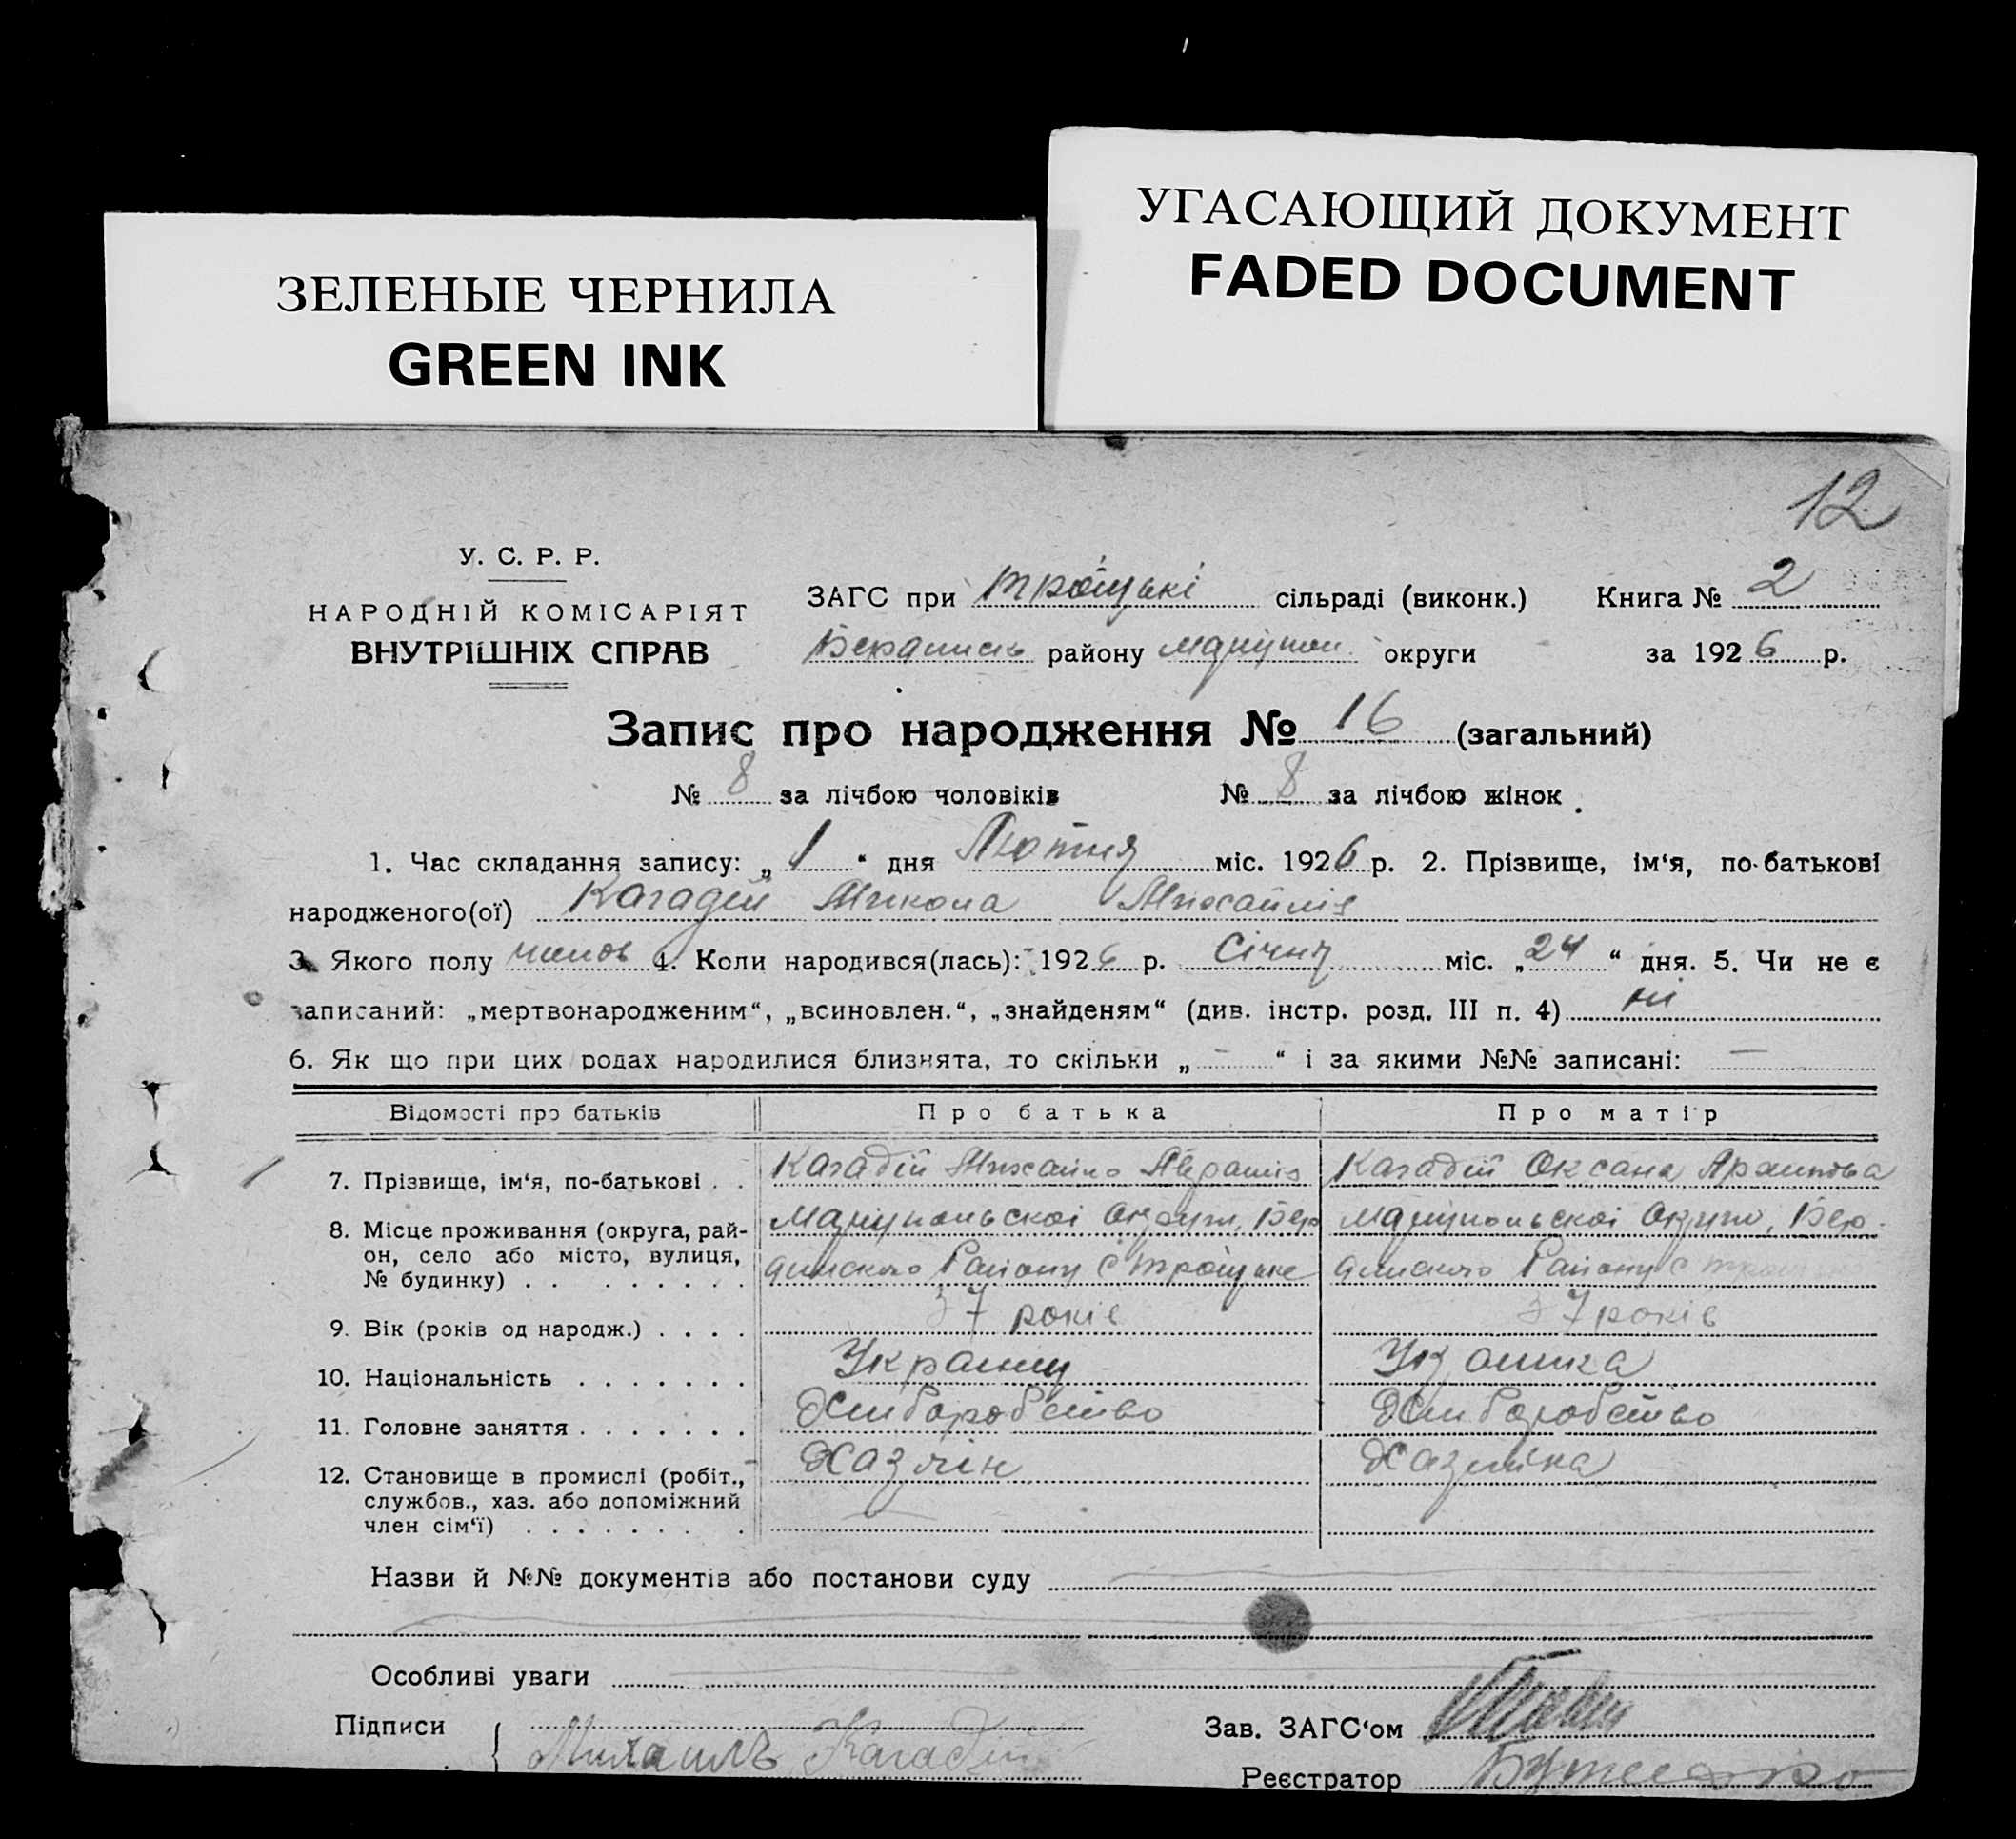 УГАСАЮЩИЙ ДОКУМЕНТ
FADED DOCUMENT
ЗЕЛЕНЫЕ ЧЕРНИЛА
GREEN INK
12
У. С. Р. Р.
НАРОДНІЙ КОМІСАРІЯТ
ВНУТРІШНІХ СПРАВ
ЗАГС при Троїцькі сільраді (виконк.) Книга № 2
району Маріупол. округи за 1926 р.
Запис про народження № 16 (загальний)
№ 8 за лічбою чоловіків № 8 за лічбою жінок
1. Час складання запису: „1“ дня Лютня міс. 1926 р. 2. Прізвище, ім‘я, по-батькові
народженого(ої) Кагадій Микола Михайлів
3. Якого полу 4. Коли народився(лась): 1926 р. Січня міс. „24“ дня. 5. Чи не є
записаний: „мертвонародженим“, „всиновлен.“, „знайденям“ (див. інстр. розд. III п. 4) ні
6. Як що при цих родах народилися близнята, то скільки „—“ і за якими №№ записані: —
Відомості про батьків Про батька Про матір
7. Прізвище, ім‘я, по-батькові . . Кагадій Михайло Кагадій Оксана
8. Місце проживання (округа, район, село або місто, вулиця, № будинку) . . Маріупольскої Округи, Маріупольскої Округи,
Району с Троїцьке Району с
9. Вік (років од народж.) . . . . 37 років 37 років
10. Національність . . . . . . . Українц Українка
11. Головне заняття . . . . . . . Хліборобство Хліборобство
12. Становище в промислі (робіт., службов., хаз. або допоміжний член сім‘ї) Хазяїн Хазяїна
Назви й №№ документів або постанови суду
Особливі уваги
Підписи Михаилъ Кагадій
Зав. ЗАГС‘ом
Реєстратор